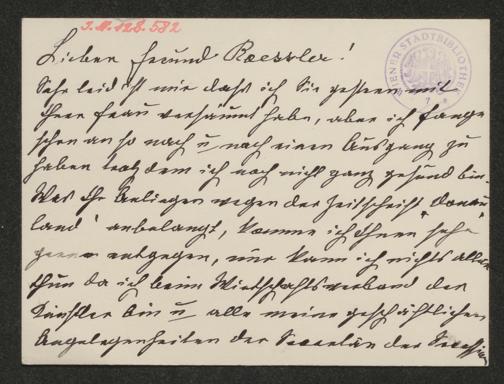 J.N. 126.582
WIENER STADTBIBLIOTHEK
Lieber Freund Roessler!
Sehr leid ist mir dass ich Sie gestern mit
Ihrer Frau versäumt habe, aber ich fange
schon an so nach u nach einen Ausgang zu
haben trotzdem ich noch nicht ganz gesund bin.
Was Ihr Anliegen wegen der Zeitschrift "Donau
land" anbelangt, komme ich Ihnen sehr
gerne entgegen, nur kann ich nichts allein
thun da ich beim Wirtschaftsverband der
Künstler bin u alle meine geschäftlichen
Angelegenheiten der Secretär der Secession